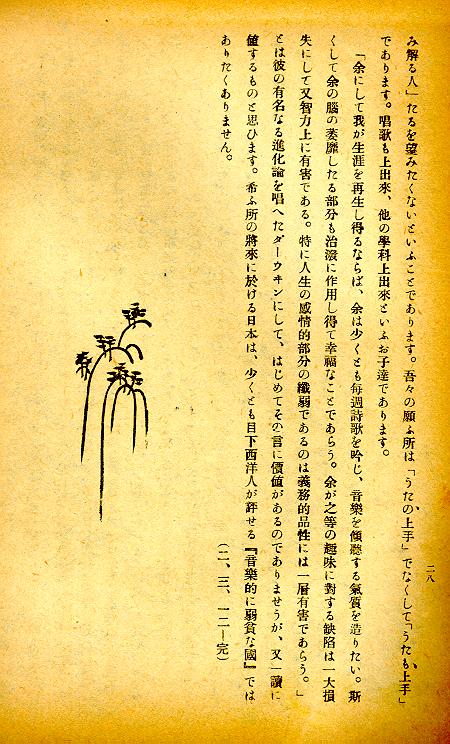 み解る人」たるを望みたくないといふことであります。吾々の願ふ所は「うたの上手」でなくして「うたも上手」
であります。唱歌も上出來、他の學科上出來といふお子達であります。
「余にして我が生涯を再生し得るならば、余は少くとも毎週詩歌を吟じ、音樂を傾聽する氣質を造りたい。斯
くして余の腦の萎靡したる部分も治潑に作用し得て幸福なことであらう。余が之等の趣味に對する缺陷は一大損
失にして又智力上に有害である。特に人生の感情的部分の纖弱であるのは義務的品性には一層有害であらう。」
とは彼の有名なる進化論を唱へたダーウヰンにして、はじめてその言に價値があるのでありませうが、又一讀に
値するものと思ひます。希ふ所の將來に於ける日本は、少くとも目下西洋人が評せる『音樂的に弱貧な國』では
ありたくありません。
(二、三、一二―完)
二八